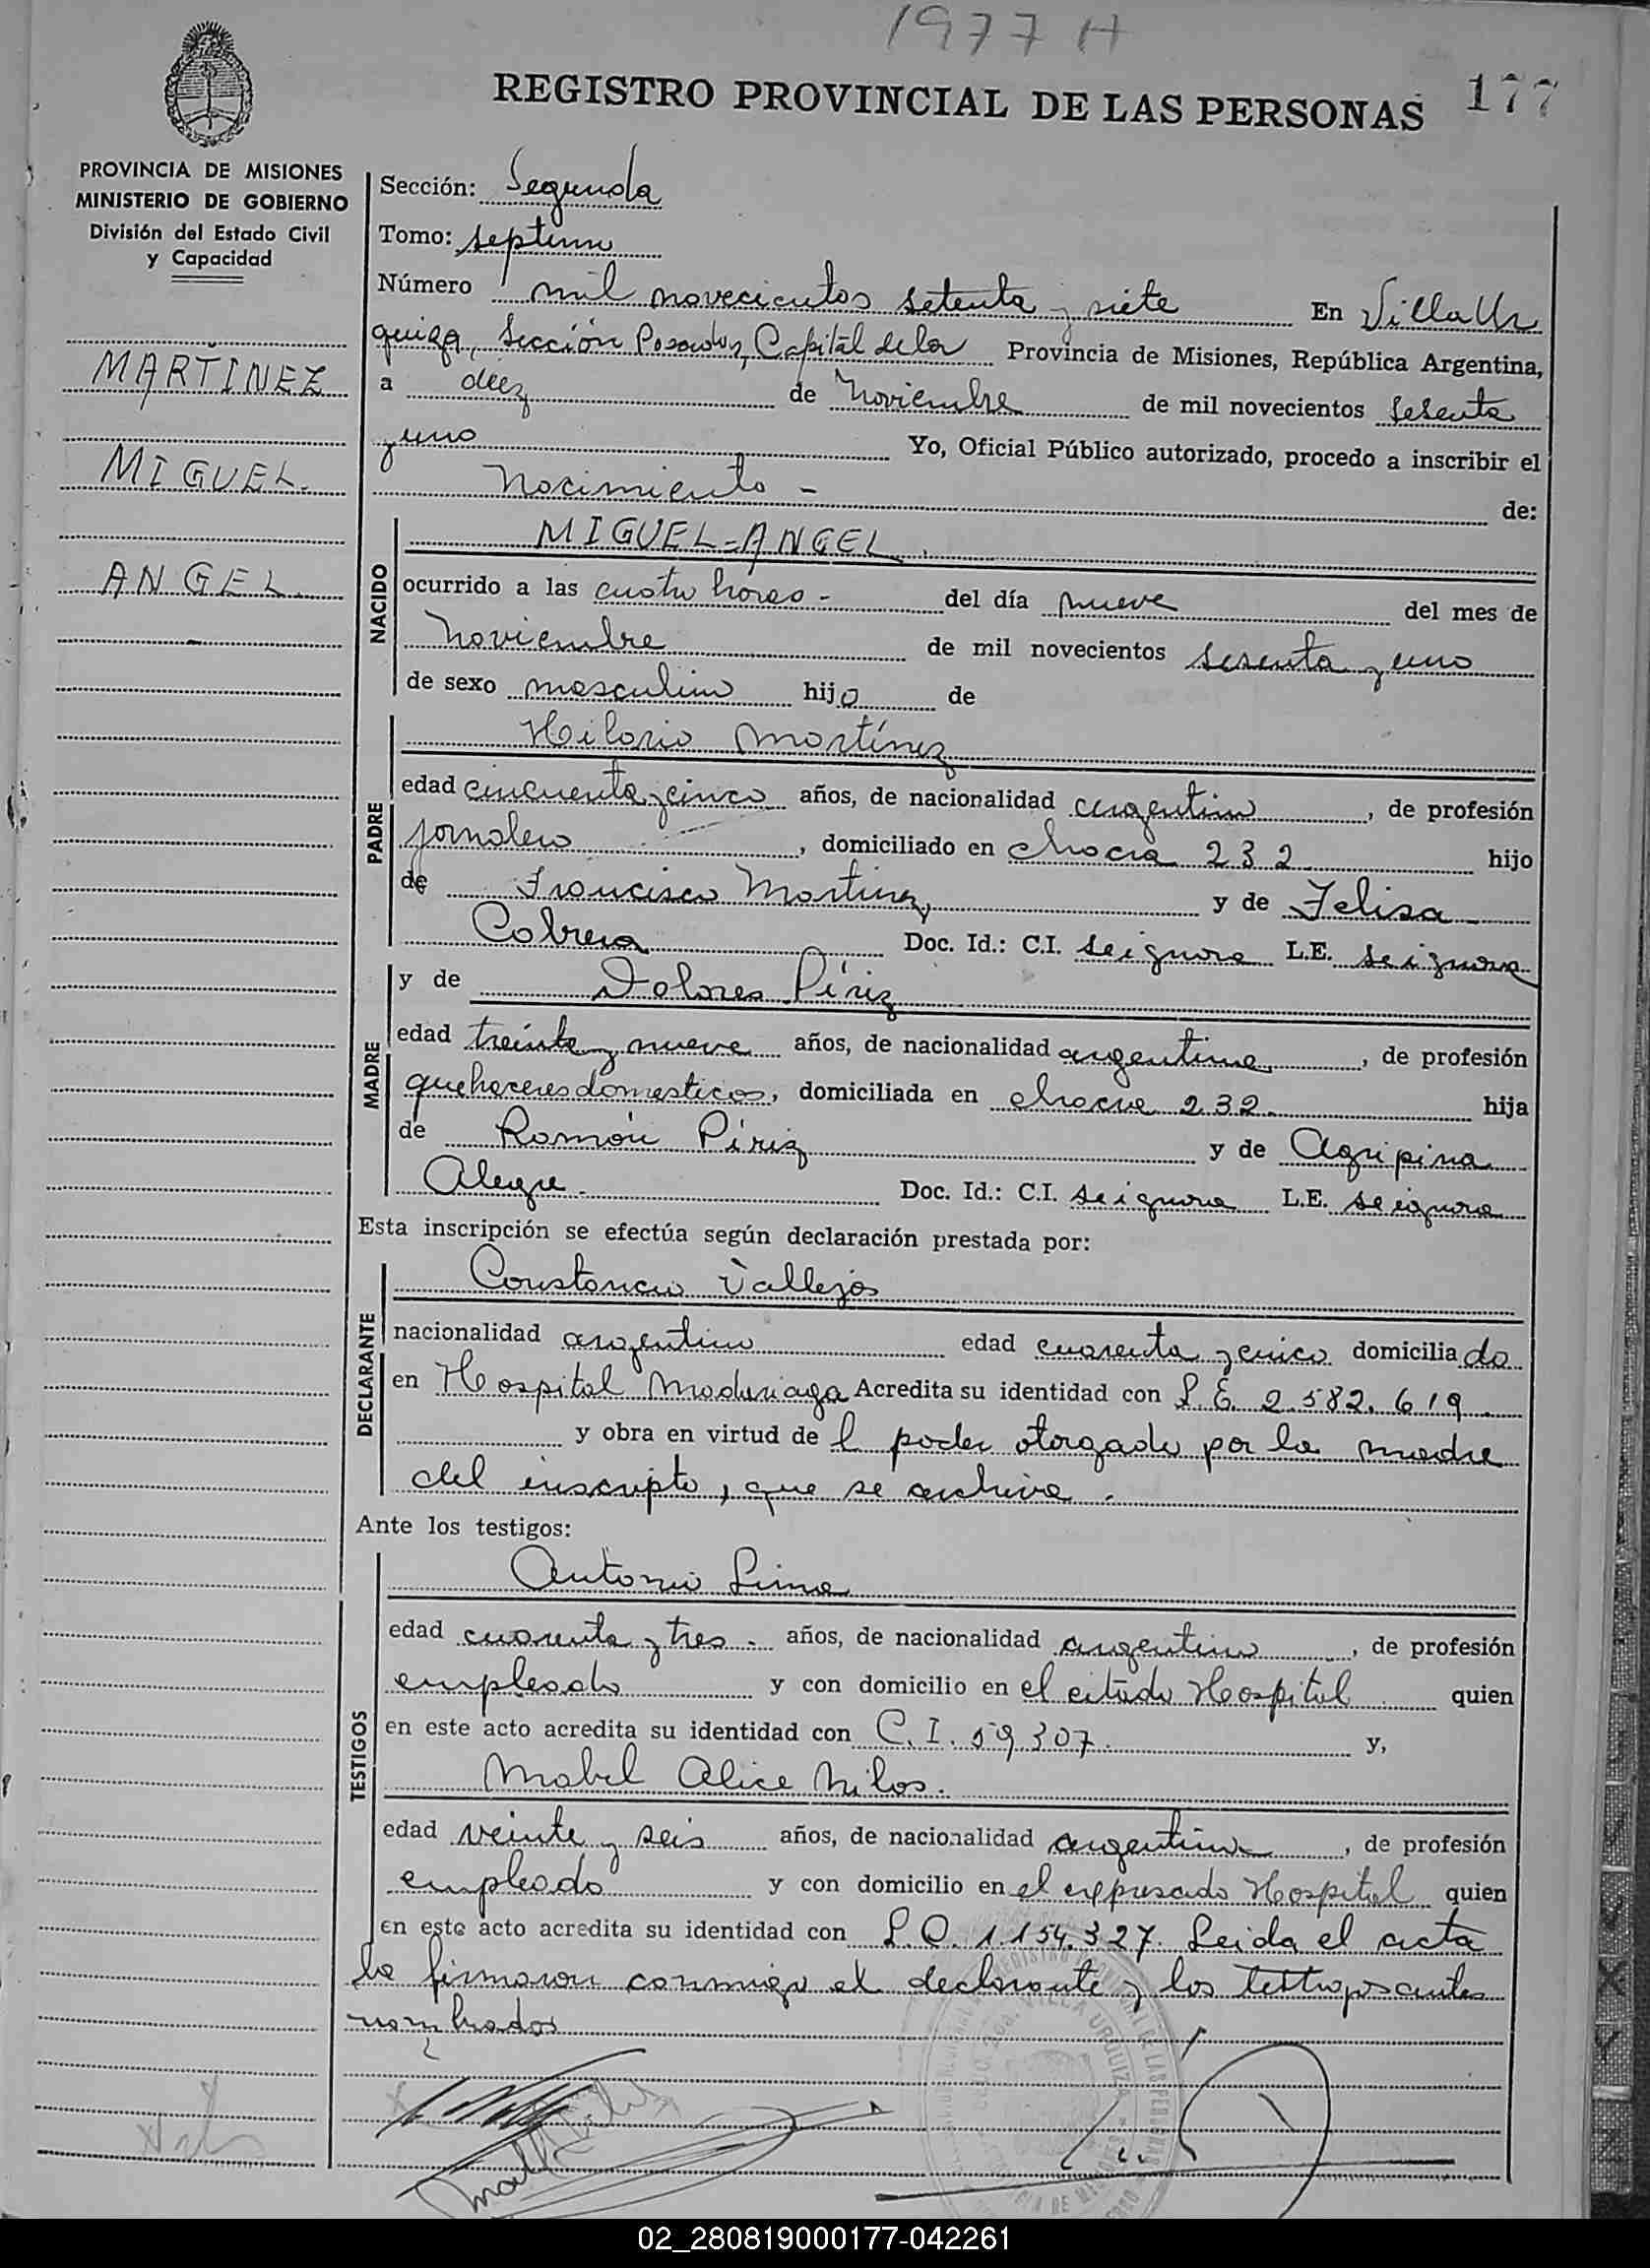 1977 H
REGISTRO PROVINCIAL DE LAS PERSONAS 177
PROVINCIA DE MISIONES
MINISTERIO DE GOBIERNO
División del Estado Civil
y Capacidad
MARTINEZ
MIGUEL.
ANGEL.
Sección: Segunda
Tomo: septimo
Número mil novecientos setenta y siete En Villa Ur
quiza, Sección Posadas, Capital de la Provincia de Misiones, República Argentina,
a diez de Noviembre de mil novecientos sesenta
y uno Yo, Oficial Público autorizado, procedo a inscribir el
Nacimiento - de:
NACIDO
MIGUEL-ANGEL.
ocurrido a las cuatro horas - del día nueve del mes de
Noviembre de mil novecientos sesenta y uno
de sexo masculino hijo de
PADRE
Hilario Martínez
edad cincuenta y cinco años, de nacionalidad argentino, de profesión
jornalero, domiciliado en chacra 232 hijo
de Francisco Martinez, y de Felisa
Cabrera Doc. Id.: C.I. se ignora L.E. se ignora
MADRE
y de Dolores Píriz
edad treinta y nueve años, de nacionalidad argentina, de profesión
quehaceres domesticos, domiciliada en chacra 232. hija
de Ramón Píriz y de Agripina
Alegre. Doc. Id.: C.I. se ignora L.E. se ignora
Esta inscripción se efectúa según declaración prestada por:
DECLARANTE
Constancio Vallejos
nacionalidad argentino edad cuarenta y cinco domiciliado
en Hospital Madariaga Acredita su identidad con L.E. 2.582.619
y obra en virtud del poder otorgado por la madre
del inscripto, que se archiva.
Ante los testigos:
TESTIGOS
Antonio Lima
edad cuarenta y tres - años, de nacionalidad argentino, de profesión
empleado y con domicilio en el citado Hospital quien
en este acto acredita su identidad con C.I. 59307. y,
Mabel Alice
edad veinte y seis años, de nacionalidad argentina, de profesión
empleada y con domicilio en el expresado Hospital quien
en este acto acredita su identidad con L.C. 1.154.327. Leida el acta
la firmaron conmigo el declarante y los
nombrados
VILLA URQUIZA
02_280819000177-042261